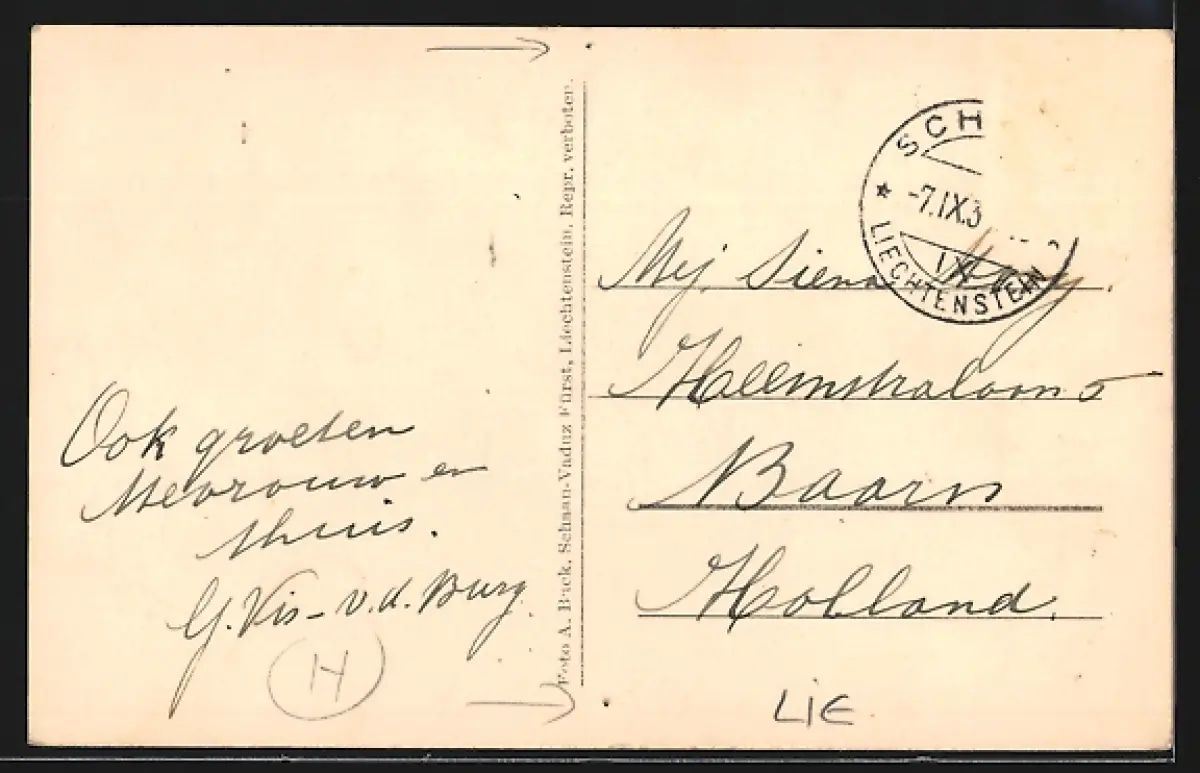 Ook groeten
Mevrouw en
thuis.
G. Vis - v.d. Burg.
H
Foto A. Buck, Schaan-Vaduz Fürst, Liechtenstein. Repr. verboten.
SCH
-7.IX.3
IX
LIECHTENSTEIN
Mej. Siena
Heemstralaan 5
Baarn
Holland.
LIE